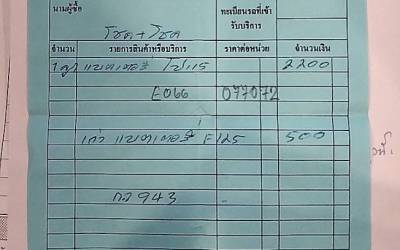 นามผู้ซื้อ
ทะเบียนรถที่เข้า
รับบริการ
โชค + โชค
จำนวน รายการสินค้าหรือบริการ ราคาต่อหน่วย จำนวนเงิน
1 ลูก แบตเตอรี่ 2200
E066 077072
เก่า แบตเตอรี่ F125 500
943